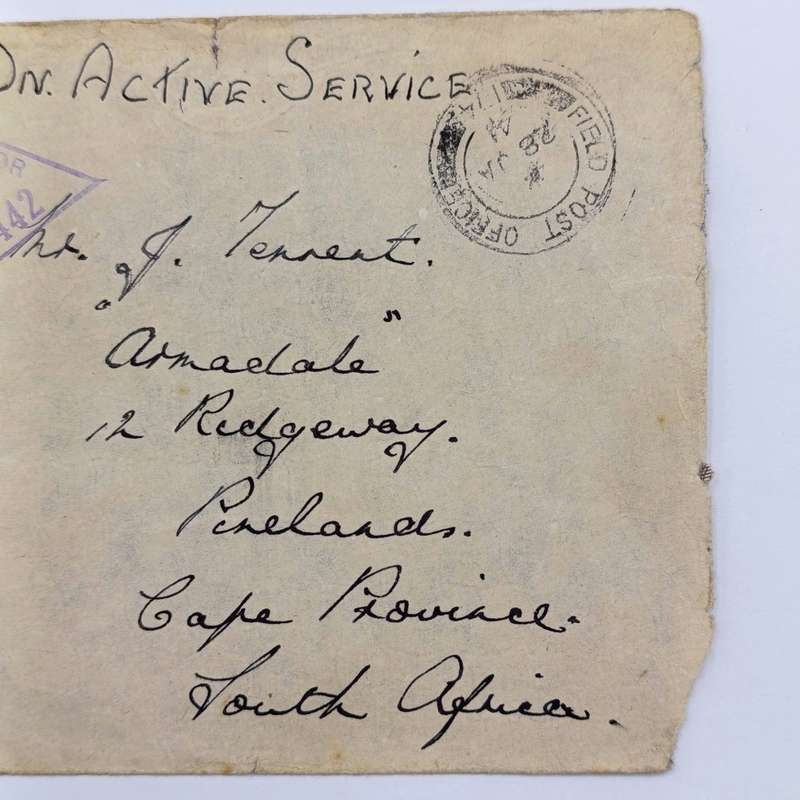 On. Active. Service
FIELD POST OFFICE
28 JA
44
OR
442
Mr. J. Tennent.
"Armadale"
12 Ridgeway.
Pinelands.
Cape Province.
South Africa.